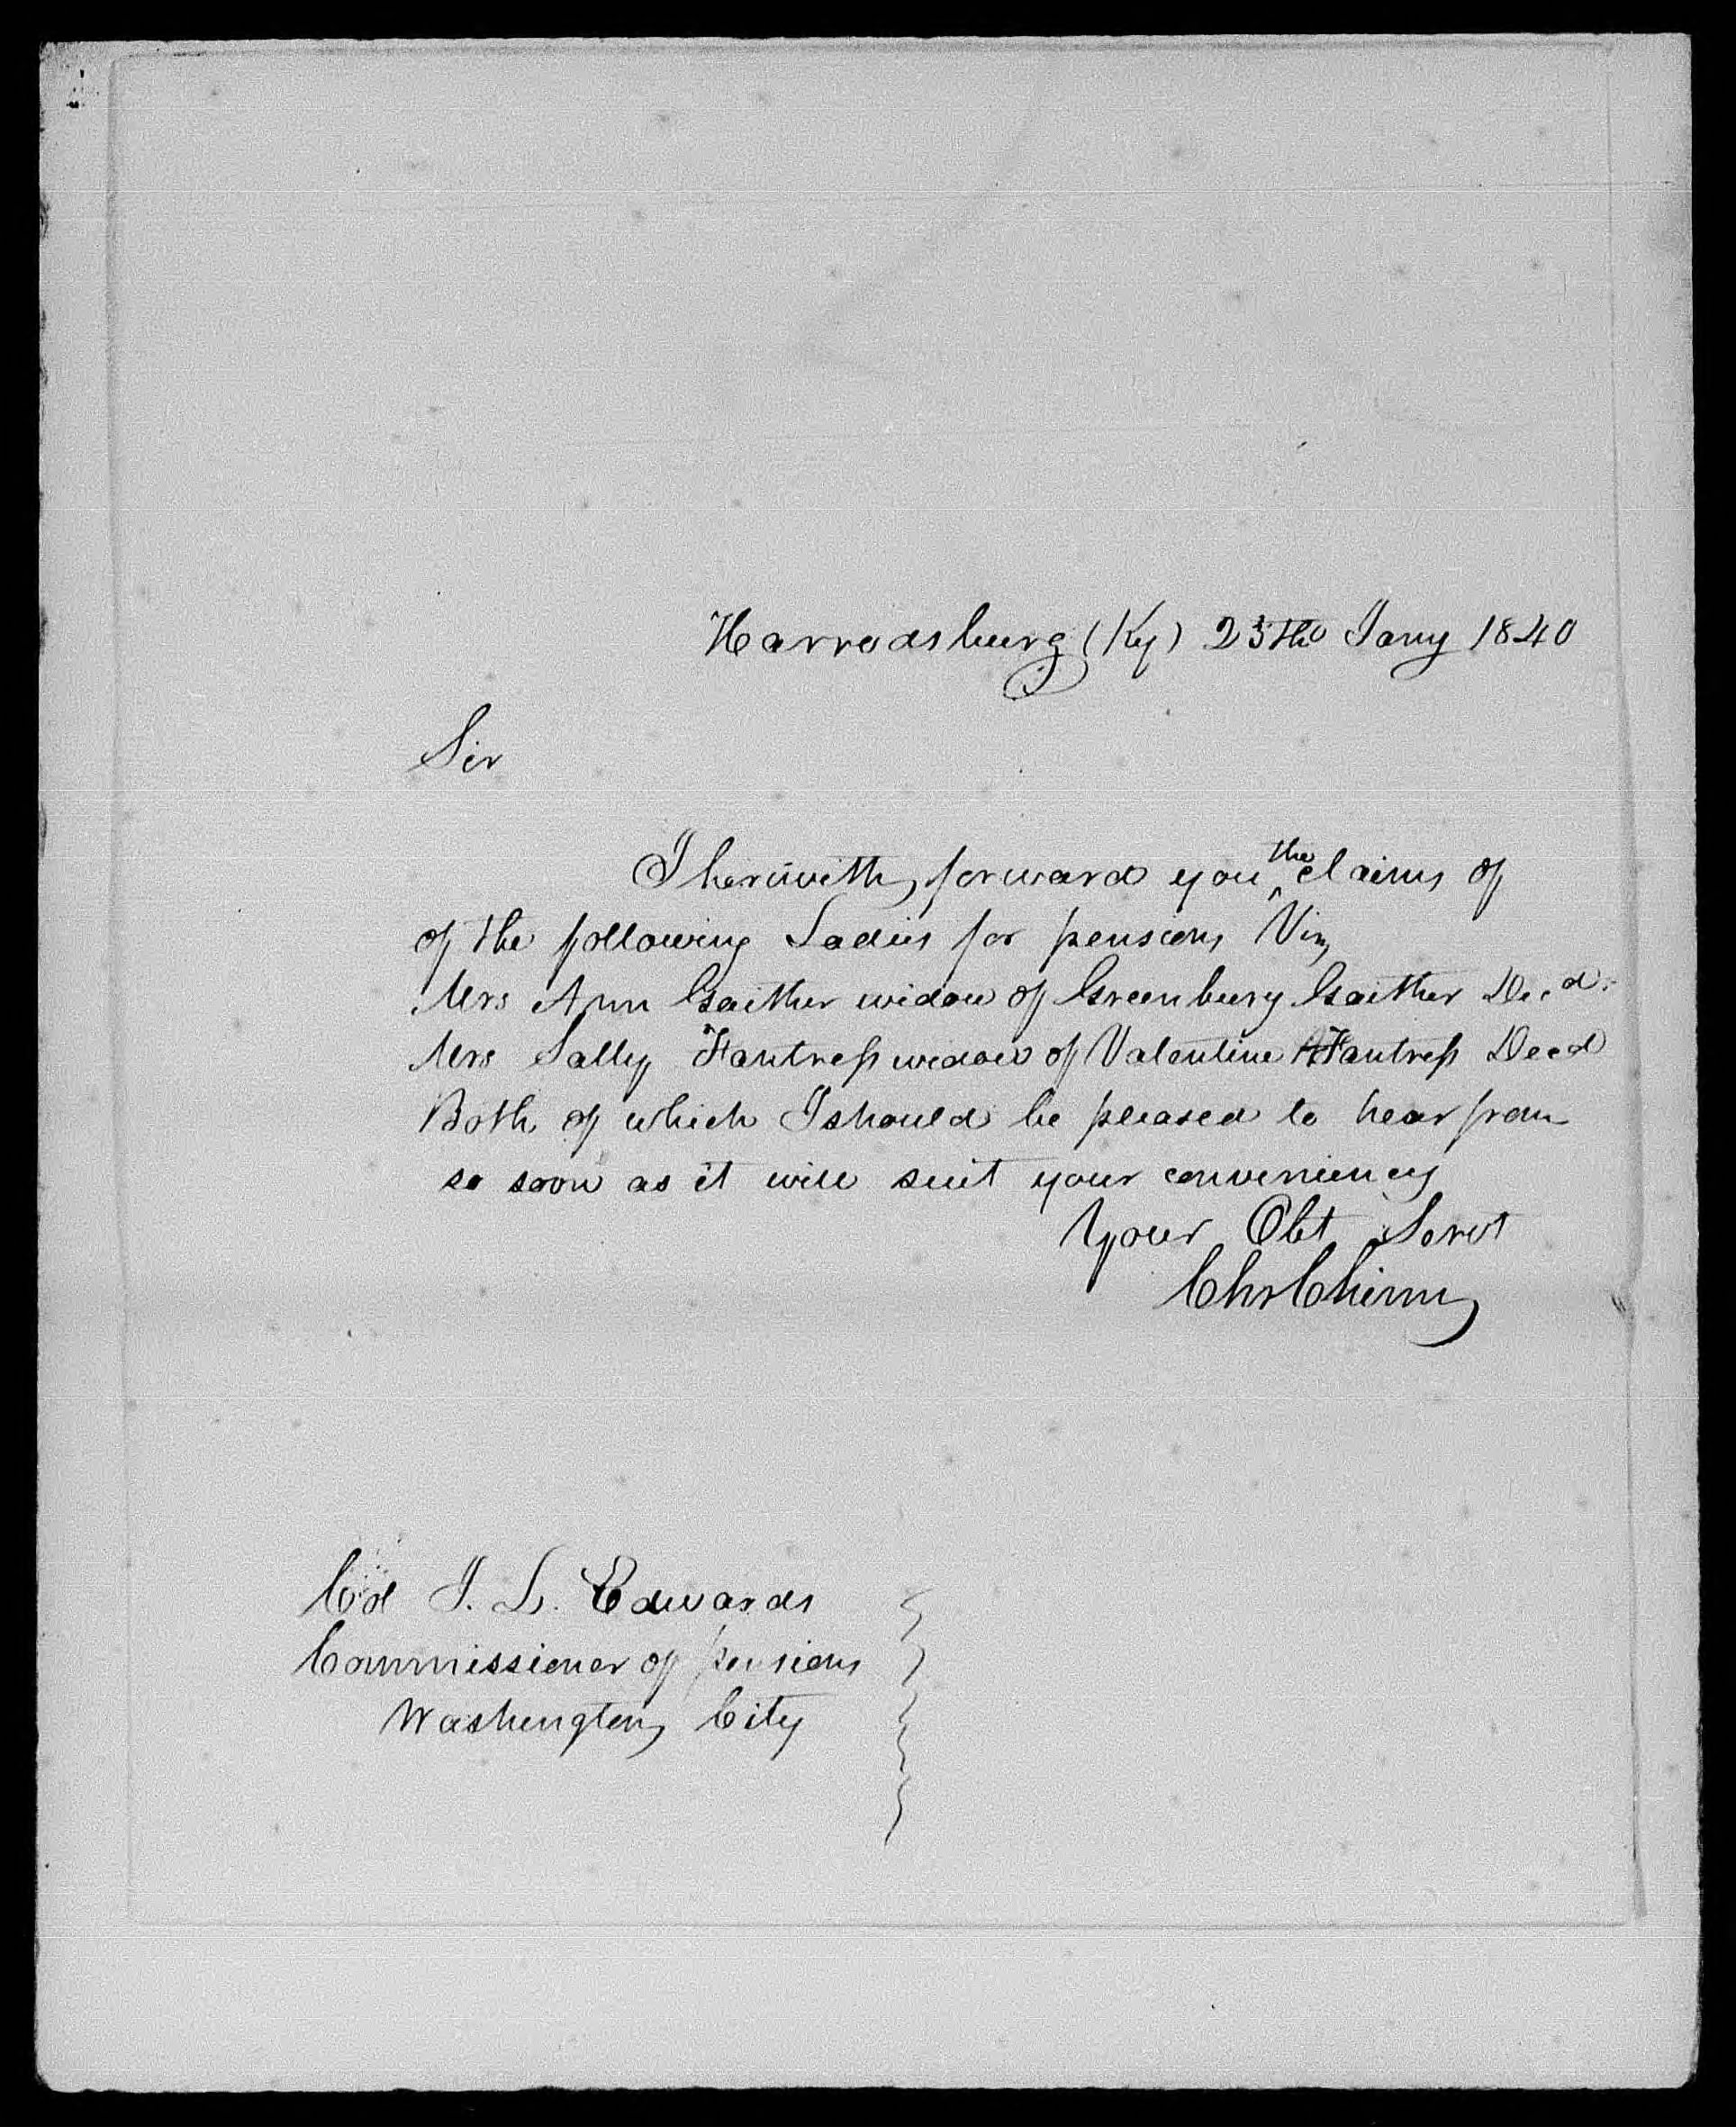 Harrodsburg (Ky) 25th Jany 1840
Sir
I herewith forward you the claims of
of the following Ladies for pensions Viz
Mrs Ann Gaither widow of Greenbury Gaither Decd.
Mrs Sally Fantress widow of Valentine Fantress Decd
Both of which I should be pleased to hear from
so soon as it will suit your conveniency
Your Obt Servt
Chr Chinn
Col J. L. Edwards
Commissioner of pensions
Washington City